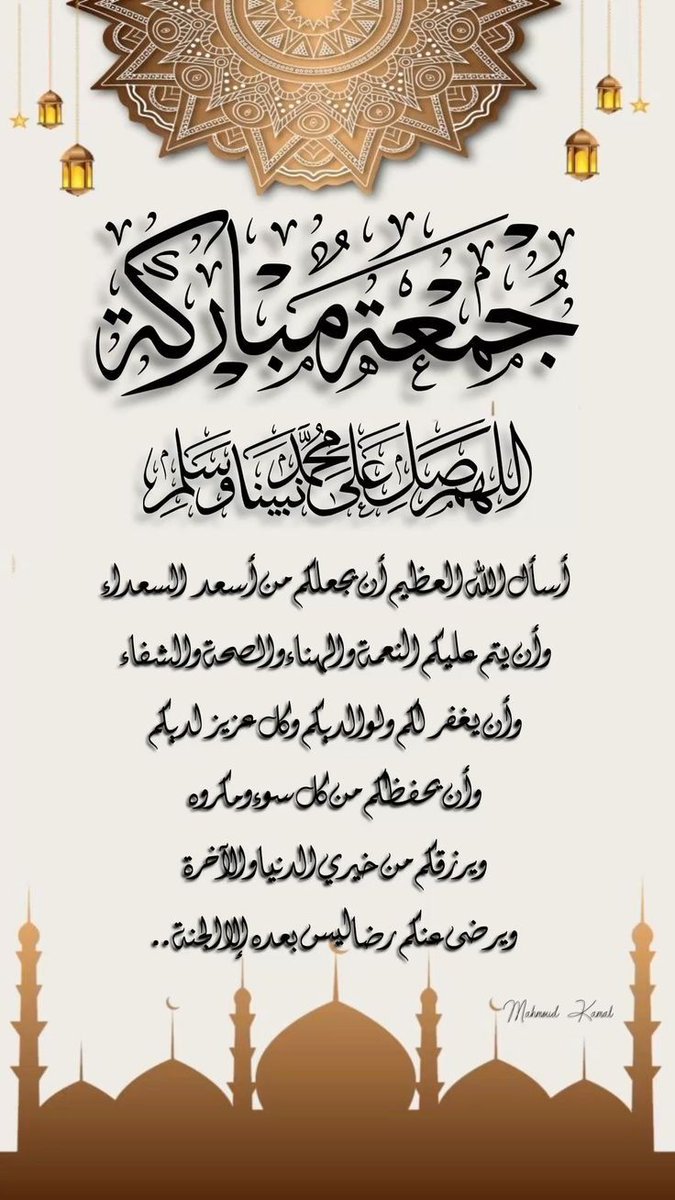 جُمْعَة مُبَارَكَة
اللهم صَلِ عَلَى مُحَمَّد نَبِينَا وَسَلِم
أسأل الله العظيم أن يجعلكم من أسعد السعداء
وأن يتم عليكم النعمة والهناء والصحة والشفاء
وأن يغفر لكم ولوالديكم وكل عزيز لديكم
وأن يحفظكم من كل سوء ومكروه
ويرزقكم من خيري الدنيا والآخرة
ويرضى عنكم رضا ليس بعده إلا الجنة..
Mahmoud Kamal